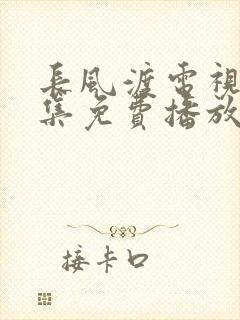 長風渡電視
集免費播放
接卡口